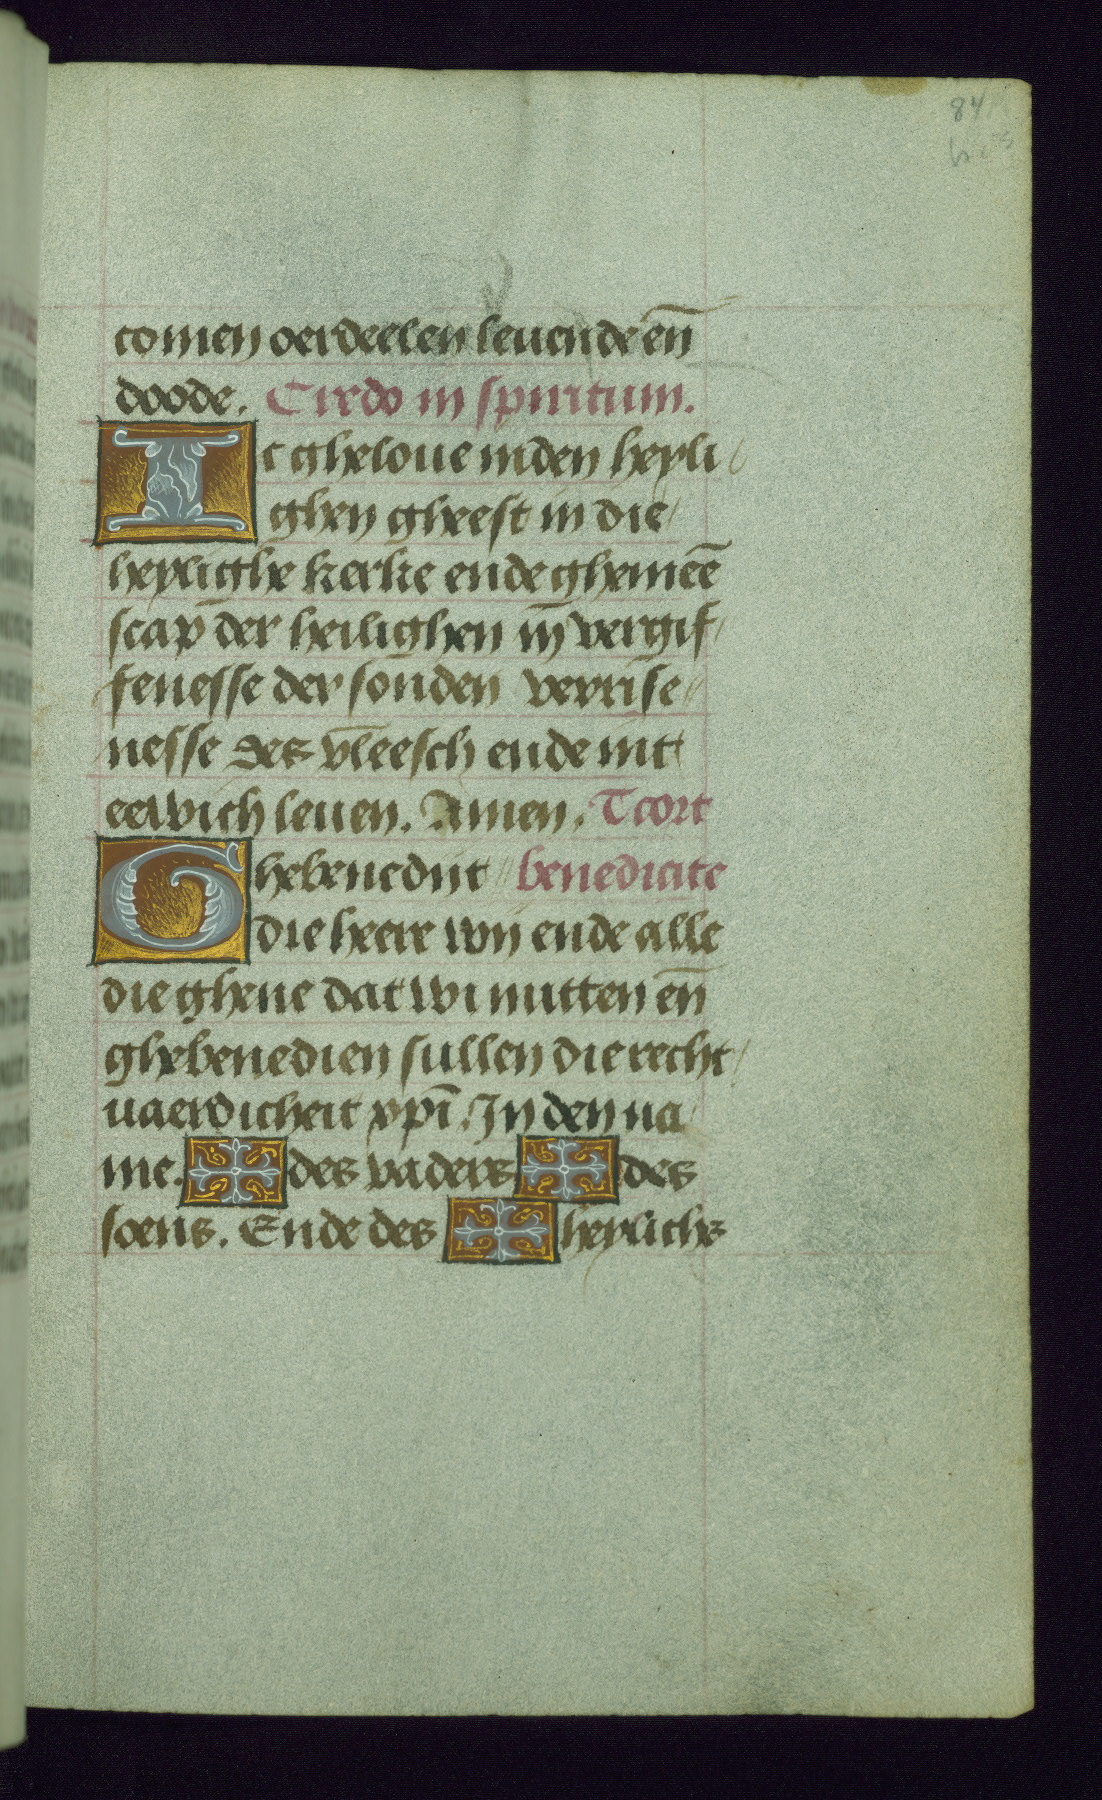 84
bis
comen oerdeelen leuende en̄
doode. Credo in spiritum.
Ic gheloue inden heyli
ghen gheest in die
heylighe kerke ende ghemeē
scap der heilighen in̄ vergif
fenesse der sonden verrise
nesse des vleesch ende int
eewich leuen. Amen. Tcort
Ghebenedijt benedicite
die heere wij ende alle
die ghene dat wi nutten en̄
ghebenedien sullen die recht
uaerdicheit xp̄i. In den na
me. des vaders des
soens. Ende des heylichs